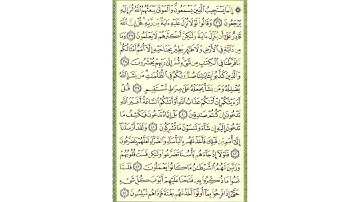 ۞ إِنَّمَا يَسْتَجِيبُ ٱلَّذِينَ يَسْمَعُونَۘ وَٱلْمَوْتَىٰ يَبْعَثُهُمُ ٱللَّهُ ثُمَّ إِلَيْهِ
يُرْجَعُونَ ٣٦ وَقَالُوا۟ لَوْلَا نُزِّلَ عَلَيْهِ ءَايَةٌ مِّن رَّبِّهِۦۚ قُلْ إِنَّ ٱللَّهَ
قَادِرٌ عَلَىٰٓ أَن يُنَزِّلَ ءَايَةً وَلَٰكِنَّ أَكْثَرَهُمْ لَا يَعْلَمُونَ ٣٧ وَمَا
مِن دَآبَّةٍ فِى ٱلْأَرْضِ وَلَا طَٰٓئِرٍ يَطِيرُ بِجَنَاحَيْهِ إِلَّآ أُمَمٌ أَمْثَالُكُمۚ
مَّا فَرَّطْنَا فِى ٱلْكِتَٰبِ مِن شَىْءٍۚ ثُمَّ إِلَىٰ رَبِّهِمْ يُحْشَرُونَ ٣٨
وَٱلَّذِينَ كَذَّبُوا۟ بِـَٔايَٰتِنَا صُمٌّ وَبُكْمٌ فِى ٱلظُّلُمَٰتِۗ مَن يَشَإِ ٱللَّهُ
يُضْلِلْهُ وَمَن يَشَأْ يَجْعَلْهُ عَلَىٰ صِرَٰطٍ مُّسْتَقِيمٍ ٣٩ قُلْ
أَرَءَيْتَكُمْ إِنْ أَتَىٰكُمْ عَذَابُ ٱللَّهِ أَوْ أَتَتْكُمُ ٱلسَّاعَةُ أَغَيْرَ ٱللَّهِ
تَدْعُونَ إِن كُنتُمْ صَٰدِقِينَ ٤٠ بَلْ إِيَّاهُ تَدْعُونَ فَيَكْشِفُ مَا
تَدْعُونَ إِلَيْهِ إِن شَآءَ وَتَنسَوْنَ مَا تُشْرِكُونَ ٤١ وَلَقَدْ أَرْسَلْنَآ
إِلَىٰٓ أُمَمٍ مِّن قَبْلِكَ فَأَخَذْنَٰهُم بِٱلْبَأْسَآءِ وَٱلضَّرَّآءِ لَعَلَّهُمْ يَتَضَرَّعُونَ ٤٢
فَلَوْلَآ إِذْ جَآءَهُم بَأْسُنَا تَضَرَّعُوا۟ وَلَٰكِن قَسَتْ قُلُوبُهُمْ
وَزَيَّنَ لَهُمُ ٱلشَّيْطَٰنُ مَا كَانُوا۟ يَعْمَلُونَ ٤٣ فَلَمَّا
نَسُوا۟ مَا ذُكِّرُوا۟ بِهِۦ فَتَحْنَا عَلَيْهِمْ أَبْوَٰبَ كُلِّ شَىْءٍ
حَتَّىٰٓ إِذَا فَرِحُوا۟ بِمَآ أُوتُوٓا۟ أَخَذْنَٰهُم بَغْتَةً فَإِذَا هُم مُّبْلِسُونَ ٤٤